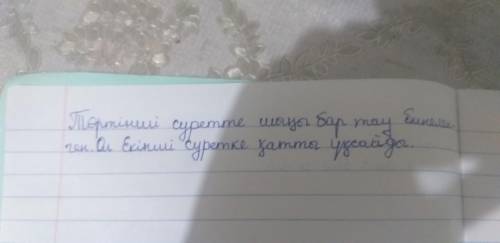 Төртінші суретте шыңы бар тау бинеле-
ген. Ол екінші суретке қатты ұқсайды.